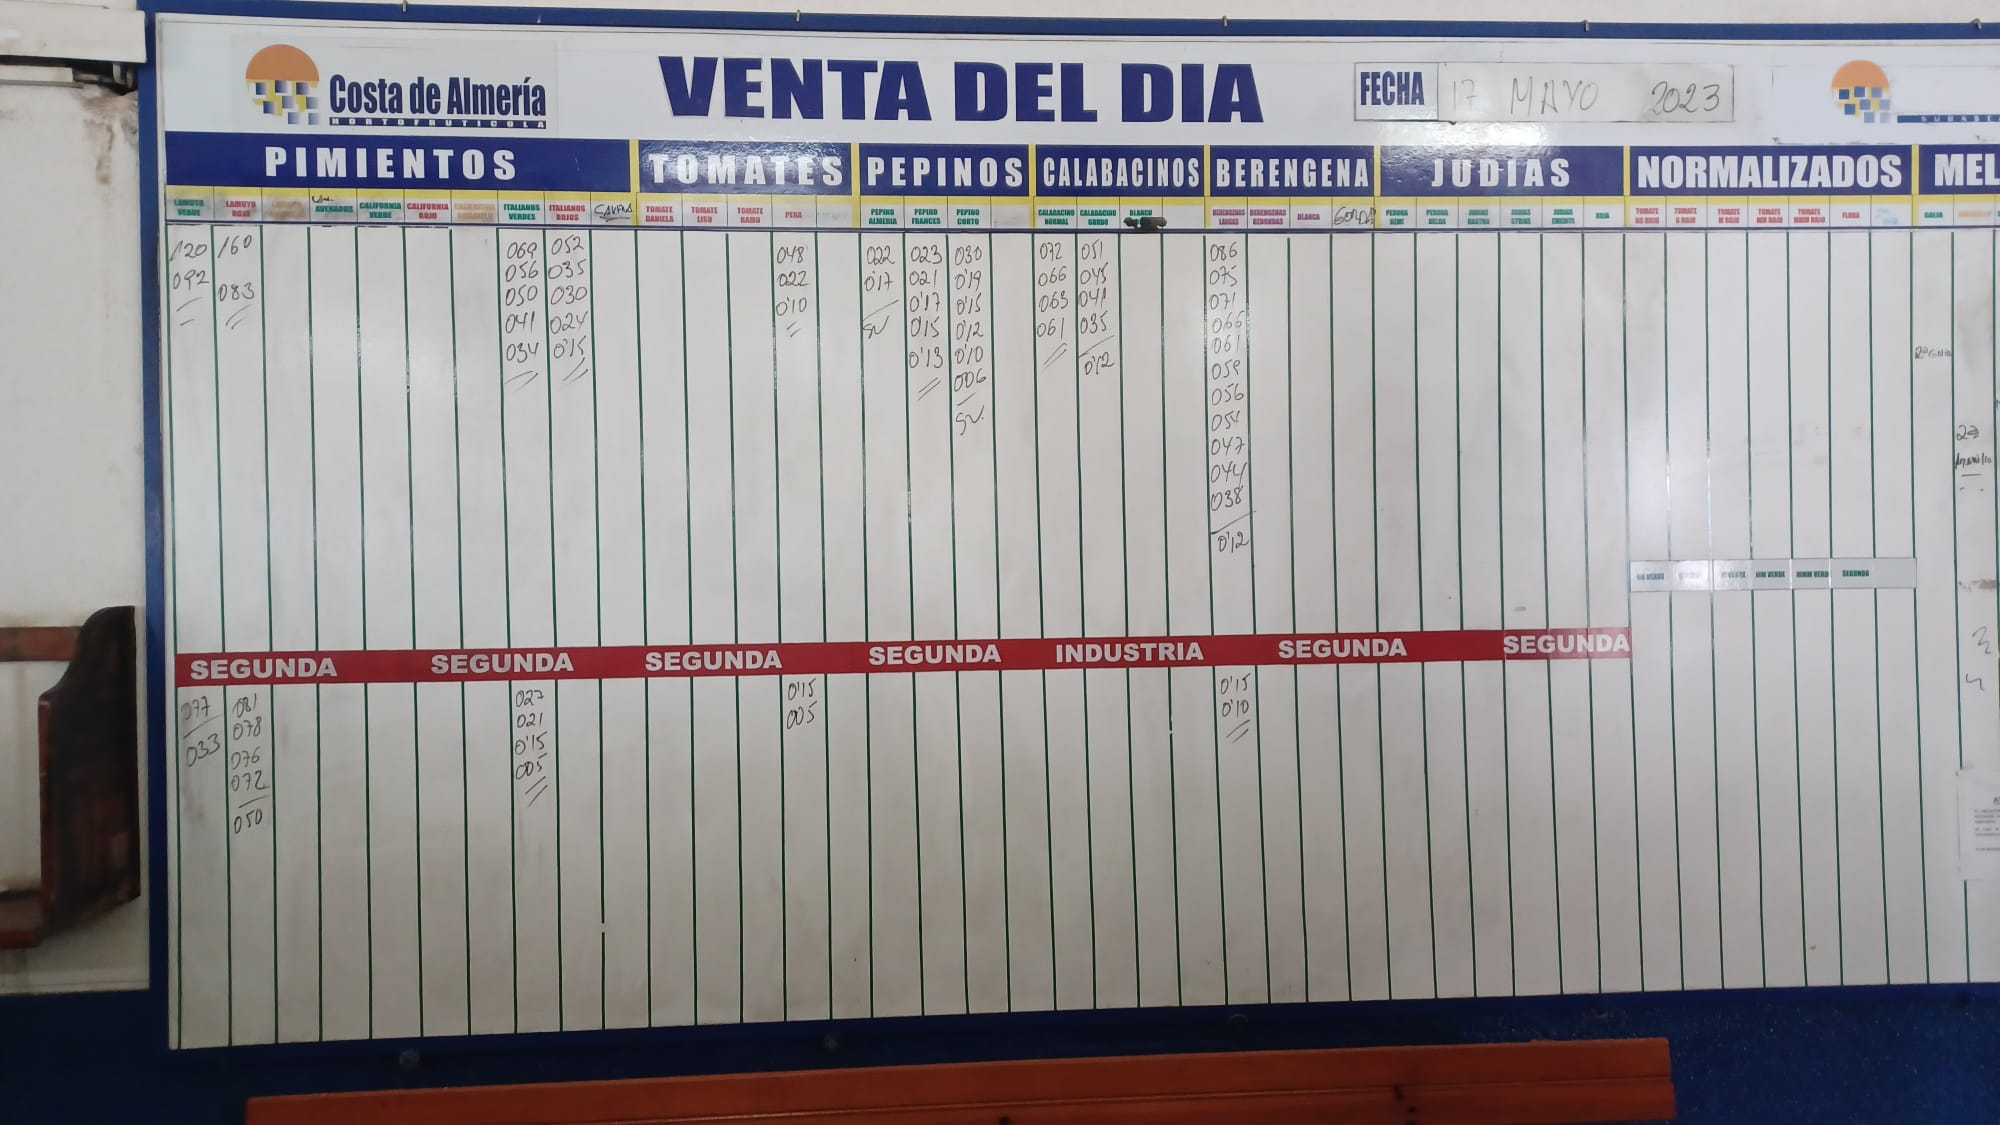 Costa de Almería
HORTOFRUTICOLA
VENTA DEL DIA
FECHA 17 MAYO 2023
PIMIENTOS TOMATES PEPINOS CALABACINOS BERENGENA JUDIAS NORMALIZADOS MEL
LAMUYO VERDE
LAMUYO ROJO
CALIFORNIA VERDE
CALIFORNIA ROJO
ITALIANOS VERDES
ITALIANOS ROJOS
TOMATE DANIELA
TOMATE LISO
TOMATE RAMO
PERA
PEPINO ALMERIA
PEPINO FRANCES
PEPINO CORTO
CALABACINO NORMAL
CALABACINO GORDO
BLANCO
BERENGENAS LARGAS
BERENGENAS REDONDAS
BLANCA
GORDA
ROJA
GALIA
120 160 069 052 048 022 023 030 072 051 086
092 083 056 035 022 0'17 021 0'19 066 045 075
050 030 0'10 0'17 0'15 063 041 071
041 024 SV 0'15 0'12 061 035 066
034 0'15 0'13 0'10 0'12 061
006 059
SV. 056
054
047
044
038
0'12
SEGUNDA SEGUNDA SEGUNDA SEGUNDA INDUSTRIA SEGUNDA SEGUNDA
077 081 027 0'15 0'15
033 078 021 005 0'10
076 0'15
072 005
050
VERDE
MM VERDE
SEGUNDA
2ª